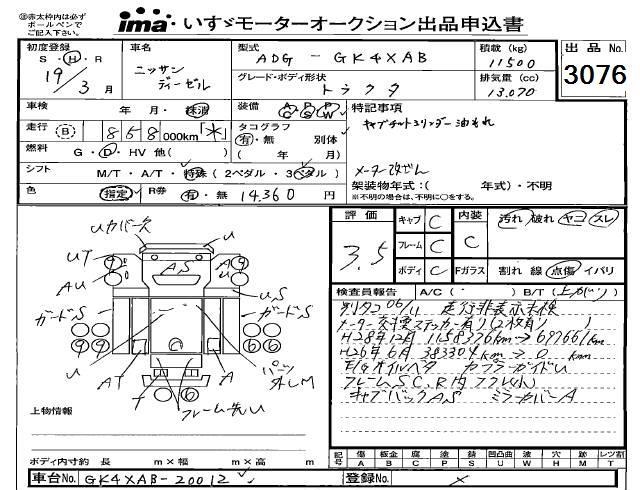 ㊟赤太枠内は必ず
ボールペンで
ご記入下さい。
ima いすゞモーターオークション出品申込書
初度登録 車名 型式 積載 (kg) 出品No.
S・H・R ニッサン ADG-GK4XAB 11500
19年3月 ディーゼル グレード・ボディ形状 排気量 (cc) 3076
トラクタ 13.070
車検 年 月・抹消 装備 AC PS PW 特記事項
走行 B 858,000km「*」 タコグラフ キャブチルトシリンダー油もれ
有・無 別体
燃料 G・D・HV 他( ) ( 年 月)
シフト M/T・A/T・特殊(2ペダル・3ペダル) メーター改ざん
色 指定 R券 有・無 14,360円 架装物年式:( 年式)・不明
※不明の場合は、不明に○をする。
評価 キャブ C 内装 汚れ 破れ ヤニ スレ
3.5 フレーム C C
ボディ C Fガラス 割れ 線 点傷 イバリ
検査員報告 A/C( ・ ) B/T(上がり)
別タコ06/11 走行非表示未検
メーター交換ステッカー有り(2枚有り)
H28年12月 1158376km→697661km
H26年6月 383304km→0km
E/gオイルベタ カプラーガイドU
フレームSC、R内フクレ小
キャブバックAS ミラーカバーA
Uカバー欠 U
UT A
AU AS
US
ガードS ガードS
U U
AT A
パーツ外しM
f フレーム先U
上物情報
ボディ内寸約 長 m×幅 m×高 m
記号 傷 板金 腐 塗 錆 凹 曲 波 穴 跡 レツ割
A B C P S U W H M T
車台No. GK4XAB-20012 登録No. ×